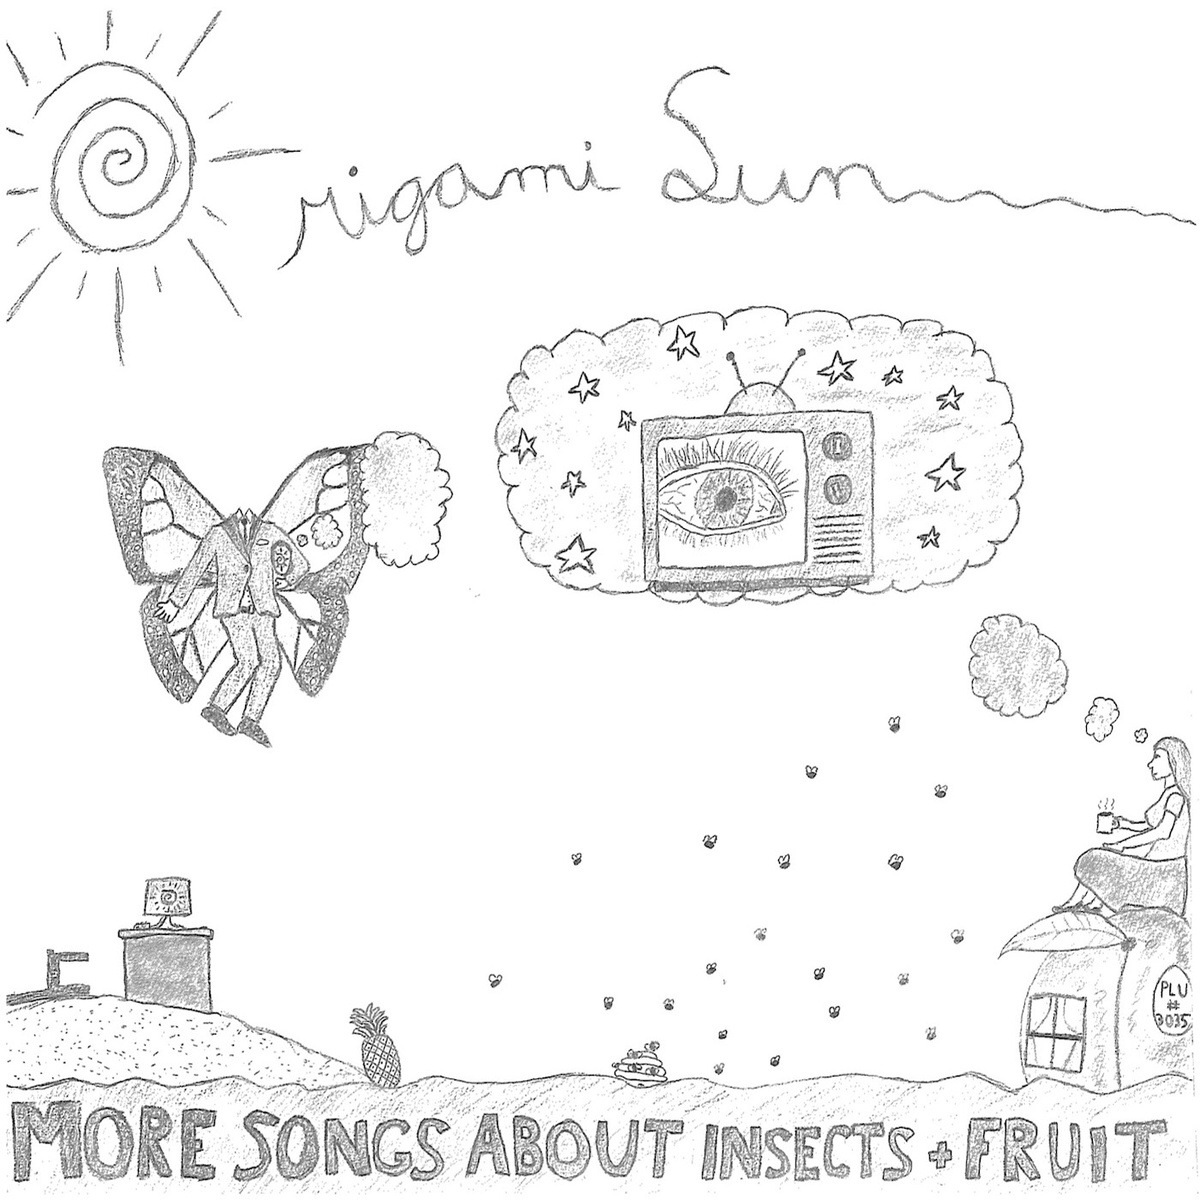 Origami Sun
PLU
#
3035
MORE SONGS ABOUT INSECTS + FRUIT